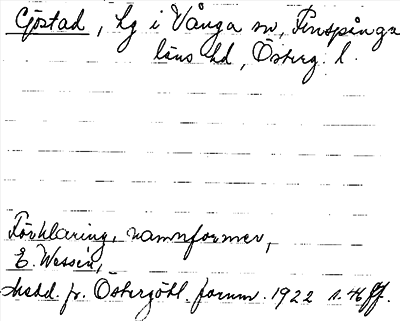 Gjöstad, Lg i Vånga sn, Finspånga
läns hd, Österg. l.
Förklaring, namnformer,
E. Wessén,
Medd. fr. Östergötl. fornm. 1922 s. 46 ff.